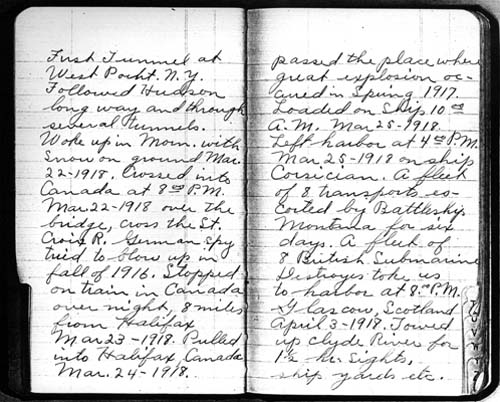 First Tunnel at
West Pocht. N.Y.
Followed Hudson
long way and through
several tunnels.
Woke up in Morn. with
Snow on ground Mar.
22-1918. Crossed into
Canada at 8 00 P.M.
Mar. 22-1918 over the
bridge, cross the St.
Croix R. German spy
tried to blow up in
fall of 1916. Stopped
on train in Canada
over night, 8 miles
from Halifax
Mar 23-1918. Pulled
into Halifax, Canada
Mar. 24-1918.
passed the place where
great explosion oc-
cured in Spring 1917.
Loaded on Ship 10 00
A.M. Mar 25-1918.
Left harbor at 4 00 P.M.
Mar. 25-1918 on ship
Corsician. A fleet
of 8 transports es-
corted by Battleship
Montana for six
days. A fleet of
8 British Submarine
Destroyes toke us
to harbor at 8 00 P.M.
Glascow, Scotland
April 3-1918. Towed
up Clyde River for
1½ hr. Sights,
ship yards etc.